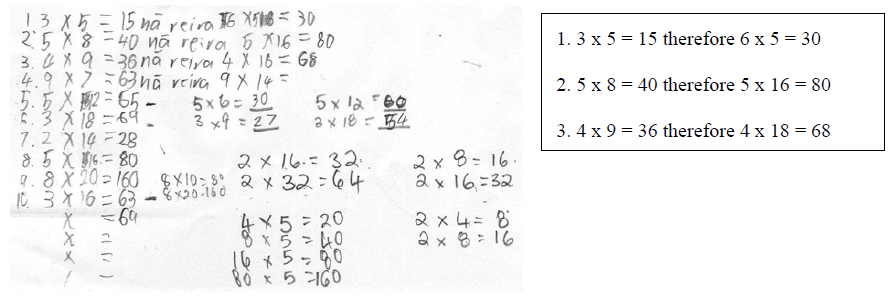 1 3 x 5 = 15 nā reira 6 x 5 = 30
2. 5 x 8 = 40 nā reira 5 x 16 = 80
3. 4 x 9 = 36 nā reira 4 x 18 = 68
4. 9 x 7 = 63 nā reira 9 x 14 =
5. 5 x 12 = 65 - 5 x 6 = 30 5 x 12 = 60
6. 3 x 18 = 69 - 3 x 9 = 27 3 x 18 = 54
7. 2 x 14 = 28
8. 5 x 16 = 80 2 x 16 = 32 2 x 8 = 16
9. 8 x 20 = 160 8 x 10 = 80 2 x 32 = 64 2 x 16 = 32
10. 3 x 16 = 63 - 8 x 20 = 160
x = 69 4 x 5 = 20 2 x 4 = 8
x = 8 x 5 = 40 2 x 8 = 16
x = 16 x 5 = 80
80 x 5 = 160
1. 3 x 5 = 15 therefore 6 x 5 = 30
2. 5 x 8 = 40 therefore 5 x 16 = 80
3. 4 x 9 = 36 therefore 4 x 18 = 68